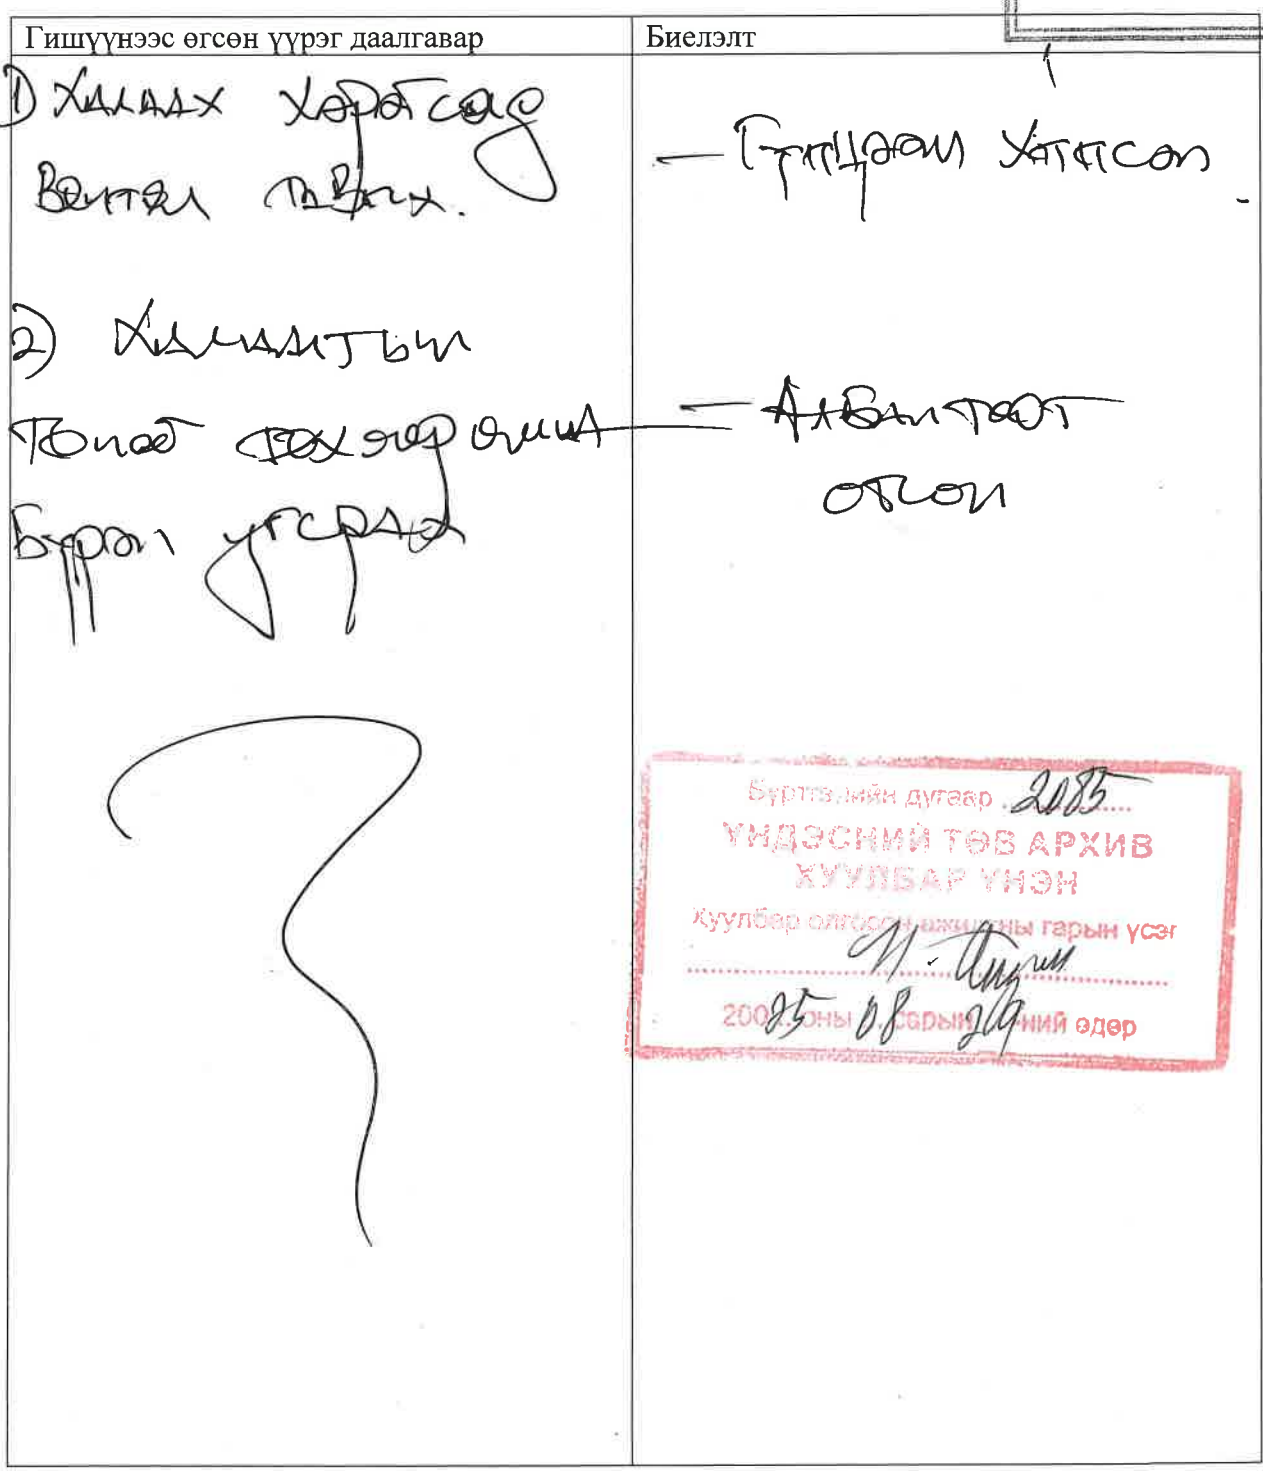 Гишүүнээс өгсөн үүрэг даалгавар
Биелэлт
1) Халаах хэрэгсэлд
Вентел тавих.
— Гүйцээж
2) Халаалтын
Тоног төхөөрөмж
Бүрэн угсрах
— Албан тоот
өгсөн
Бүртгэлийн дугаар 2085
ҮНДЭСНИЙ ТӨВ АРХИВ
ХУУЛБАР ҮНЭН
Хуулбар олгосон ажилтны гарын үсэг
200 25 оны 08 сарын 29 ний өдөр